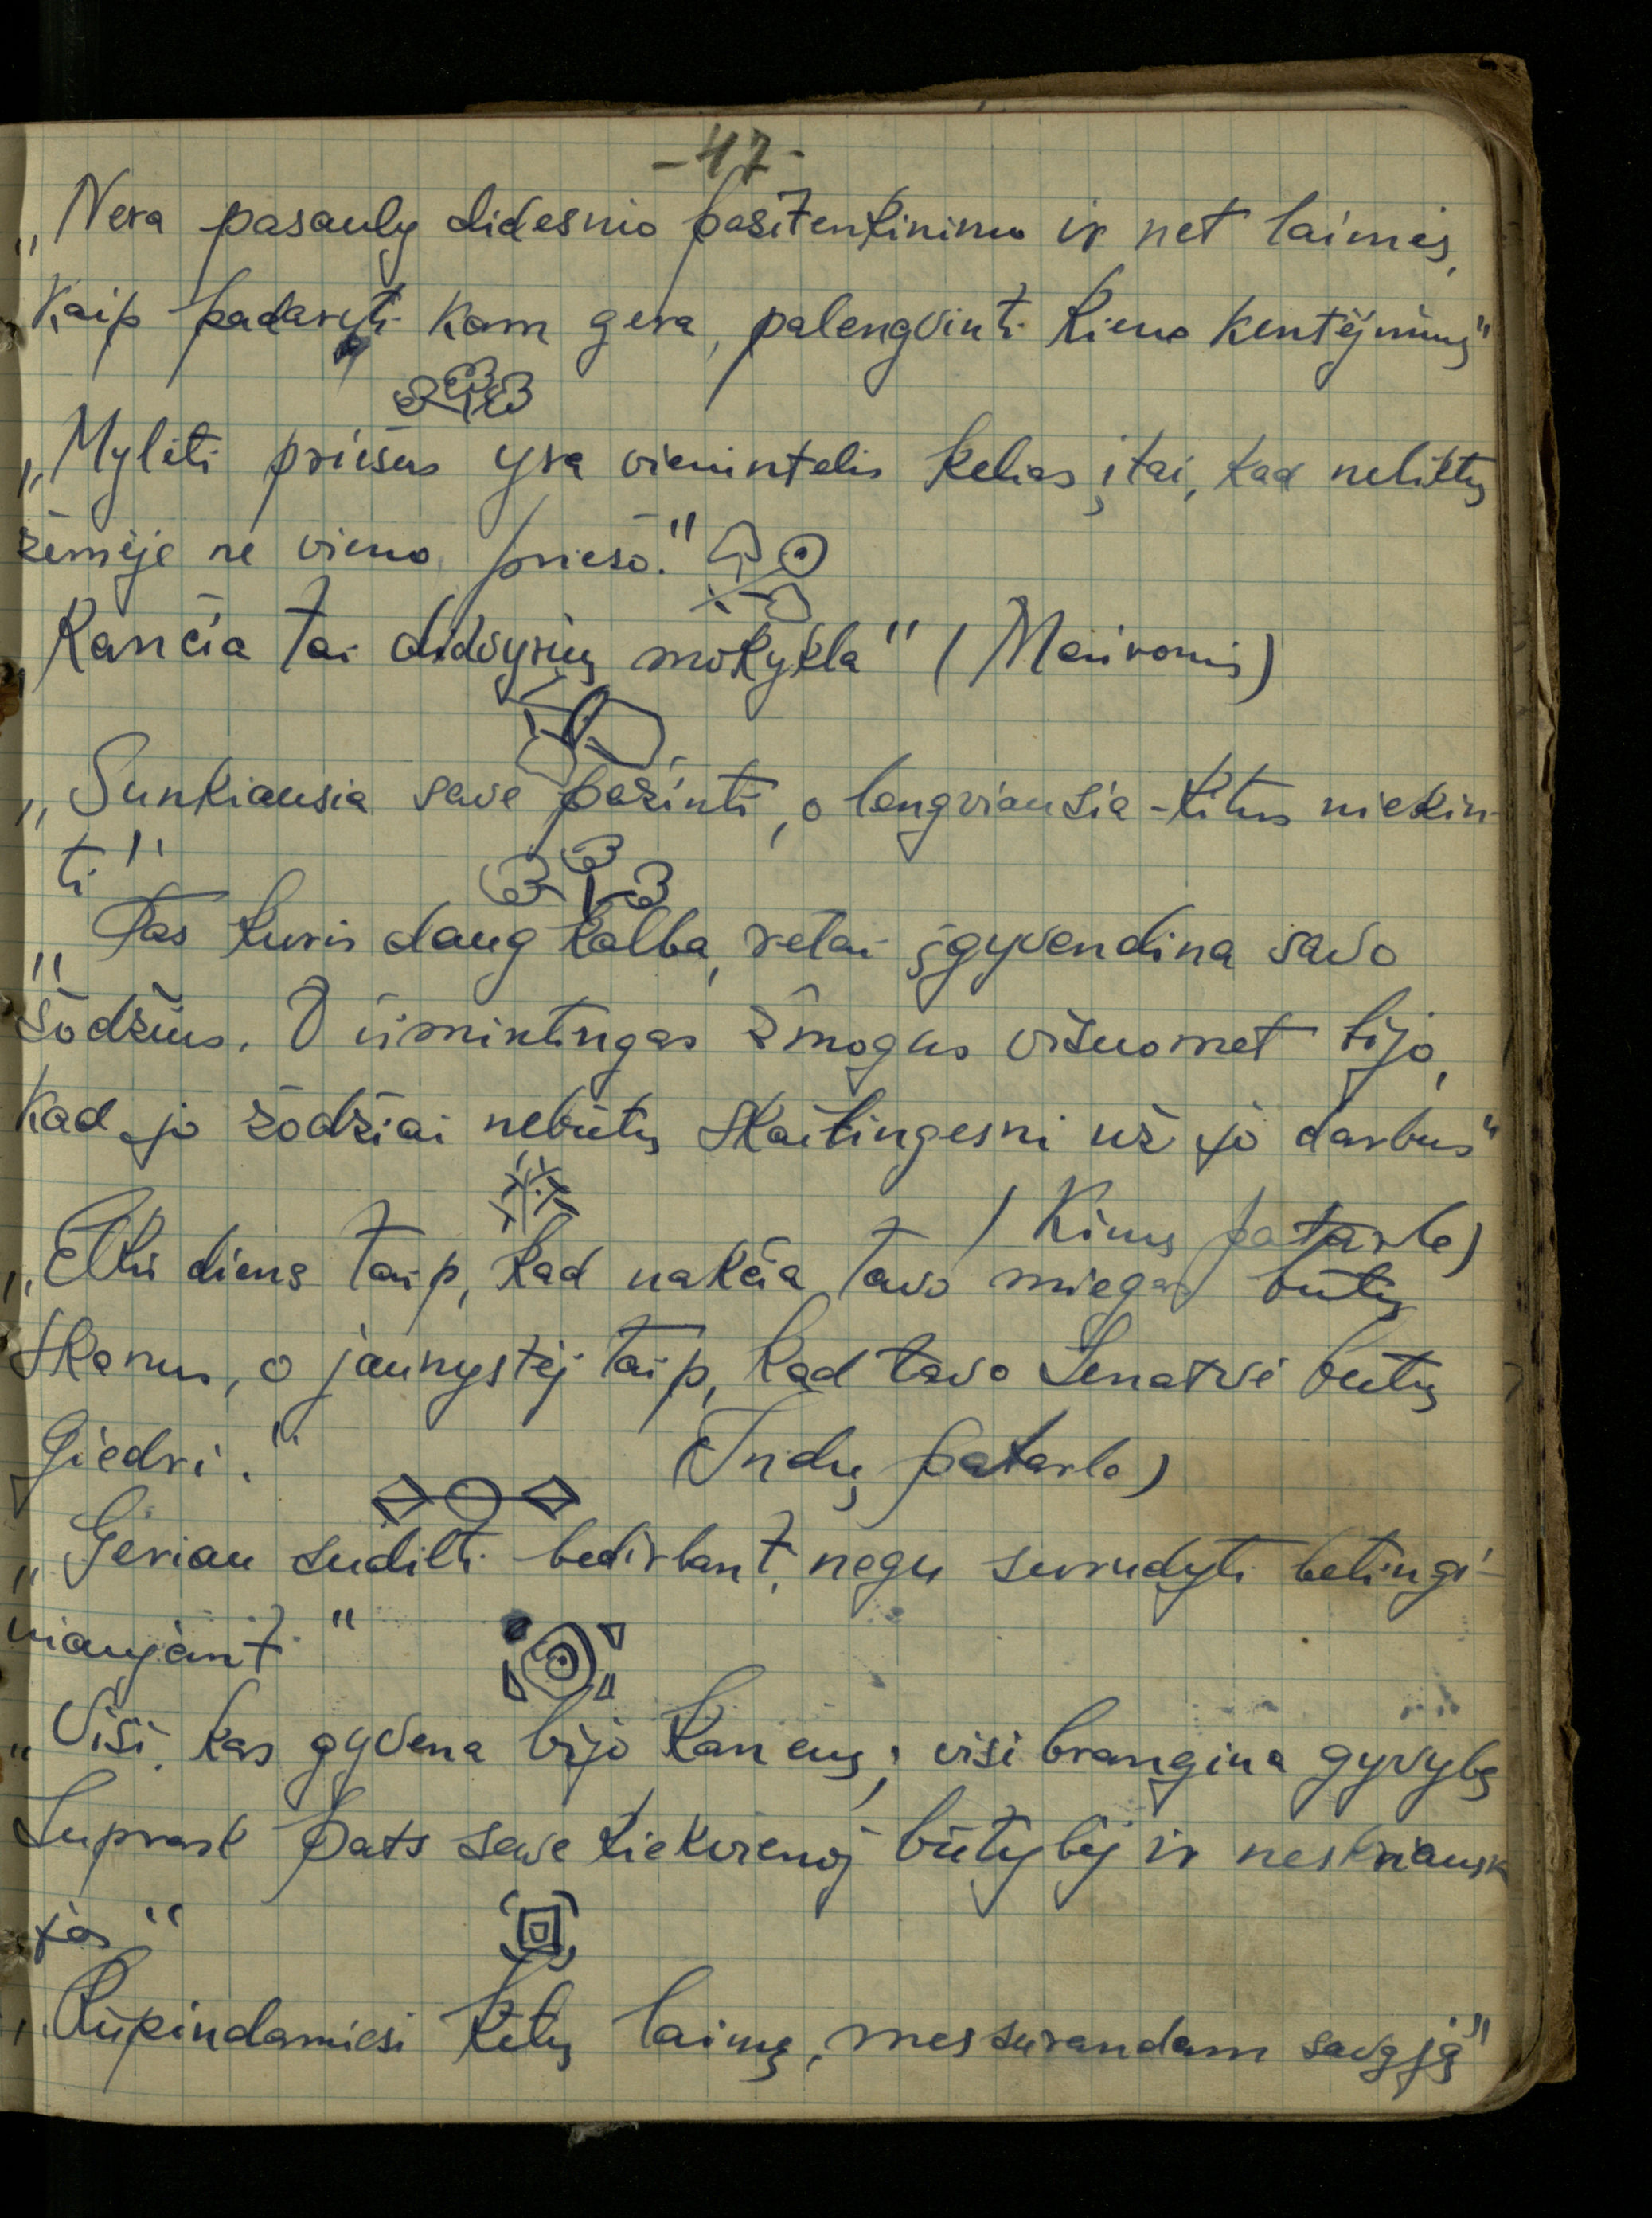 -47-
„Nera pasauly didesnio pasitenkinimo ir net laimės,
kaip padaryti kam gera, palengvinti kieno kentėjimus"
„Mylėti priešus yra vienintelis kelias į tai, kad neliktų
žemėje ne vieno priešo."
Kančia tai didvyrių mokykla" (Mairomis)
„Sunkiausia save pažinti, o lengviausia - kitus niekin-
ti"
„Tas kuris daug kalba, retai įgyvendina savo
žodžius. O išmintingas žmogus visuomet bijo,
kad jo žodžiai nebūtų skaitlingesni už jo darbus"
(Kinų patarlė)
„Elkis dieną taip, kad nakčia tavo miegas būtų
skanus, o jaunystėj taip, kad tavo senatvė būtų
giedri." (Indų patarlė)
„Geriau sudilti bedirbant, negu surudyti betingi-
niaujant"
„Visi, kas gyvena bijo kančių; visi brangina gyvybę
Suprask pats save kiekvienoj būtybėj ir neskriausk
jos"
„Rūpindamiesi kitų laimę, mes surandam savąją"